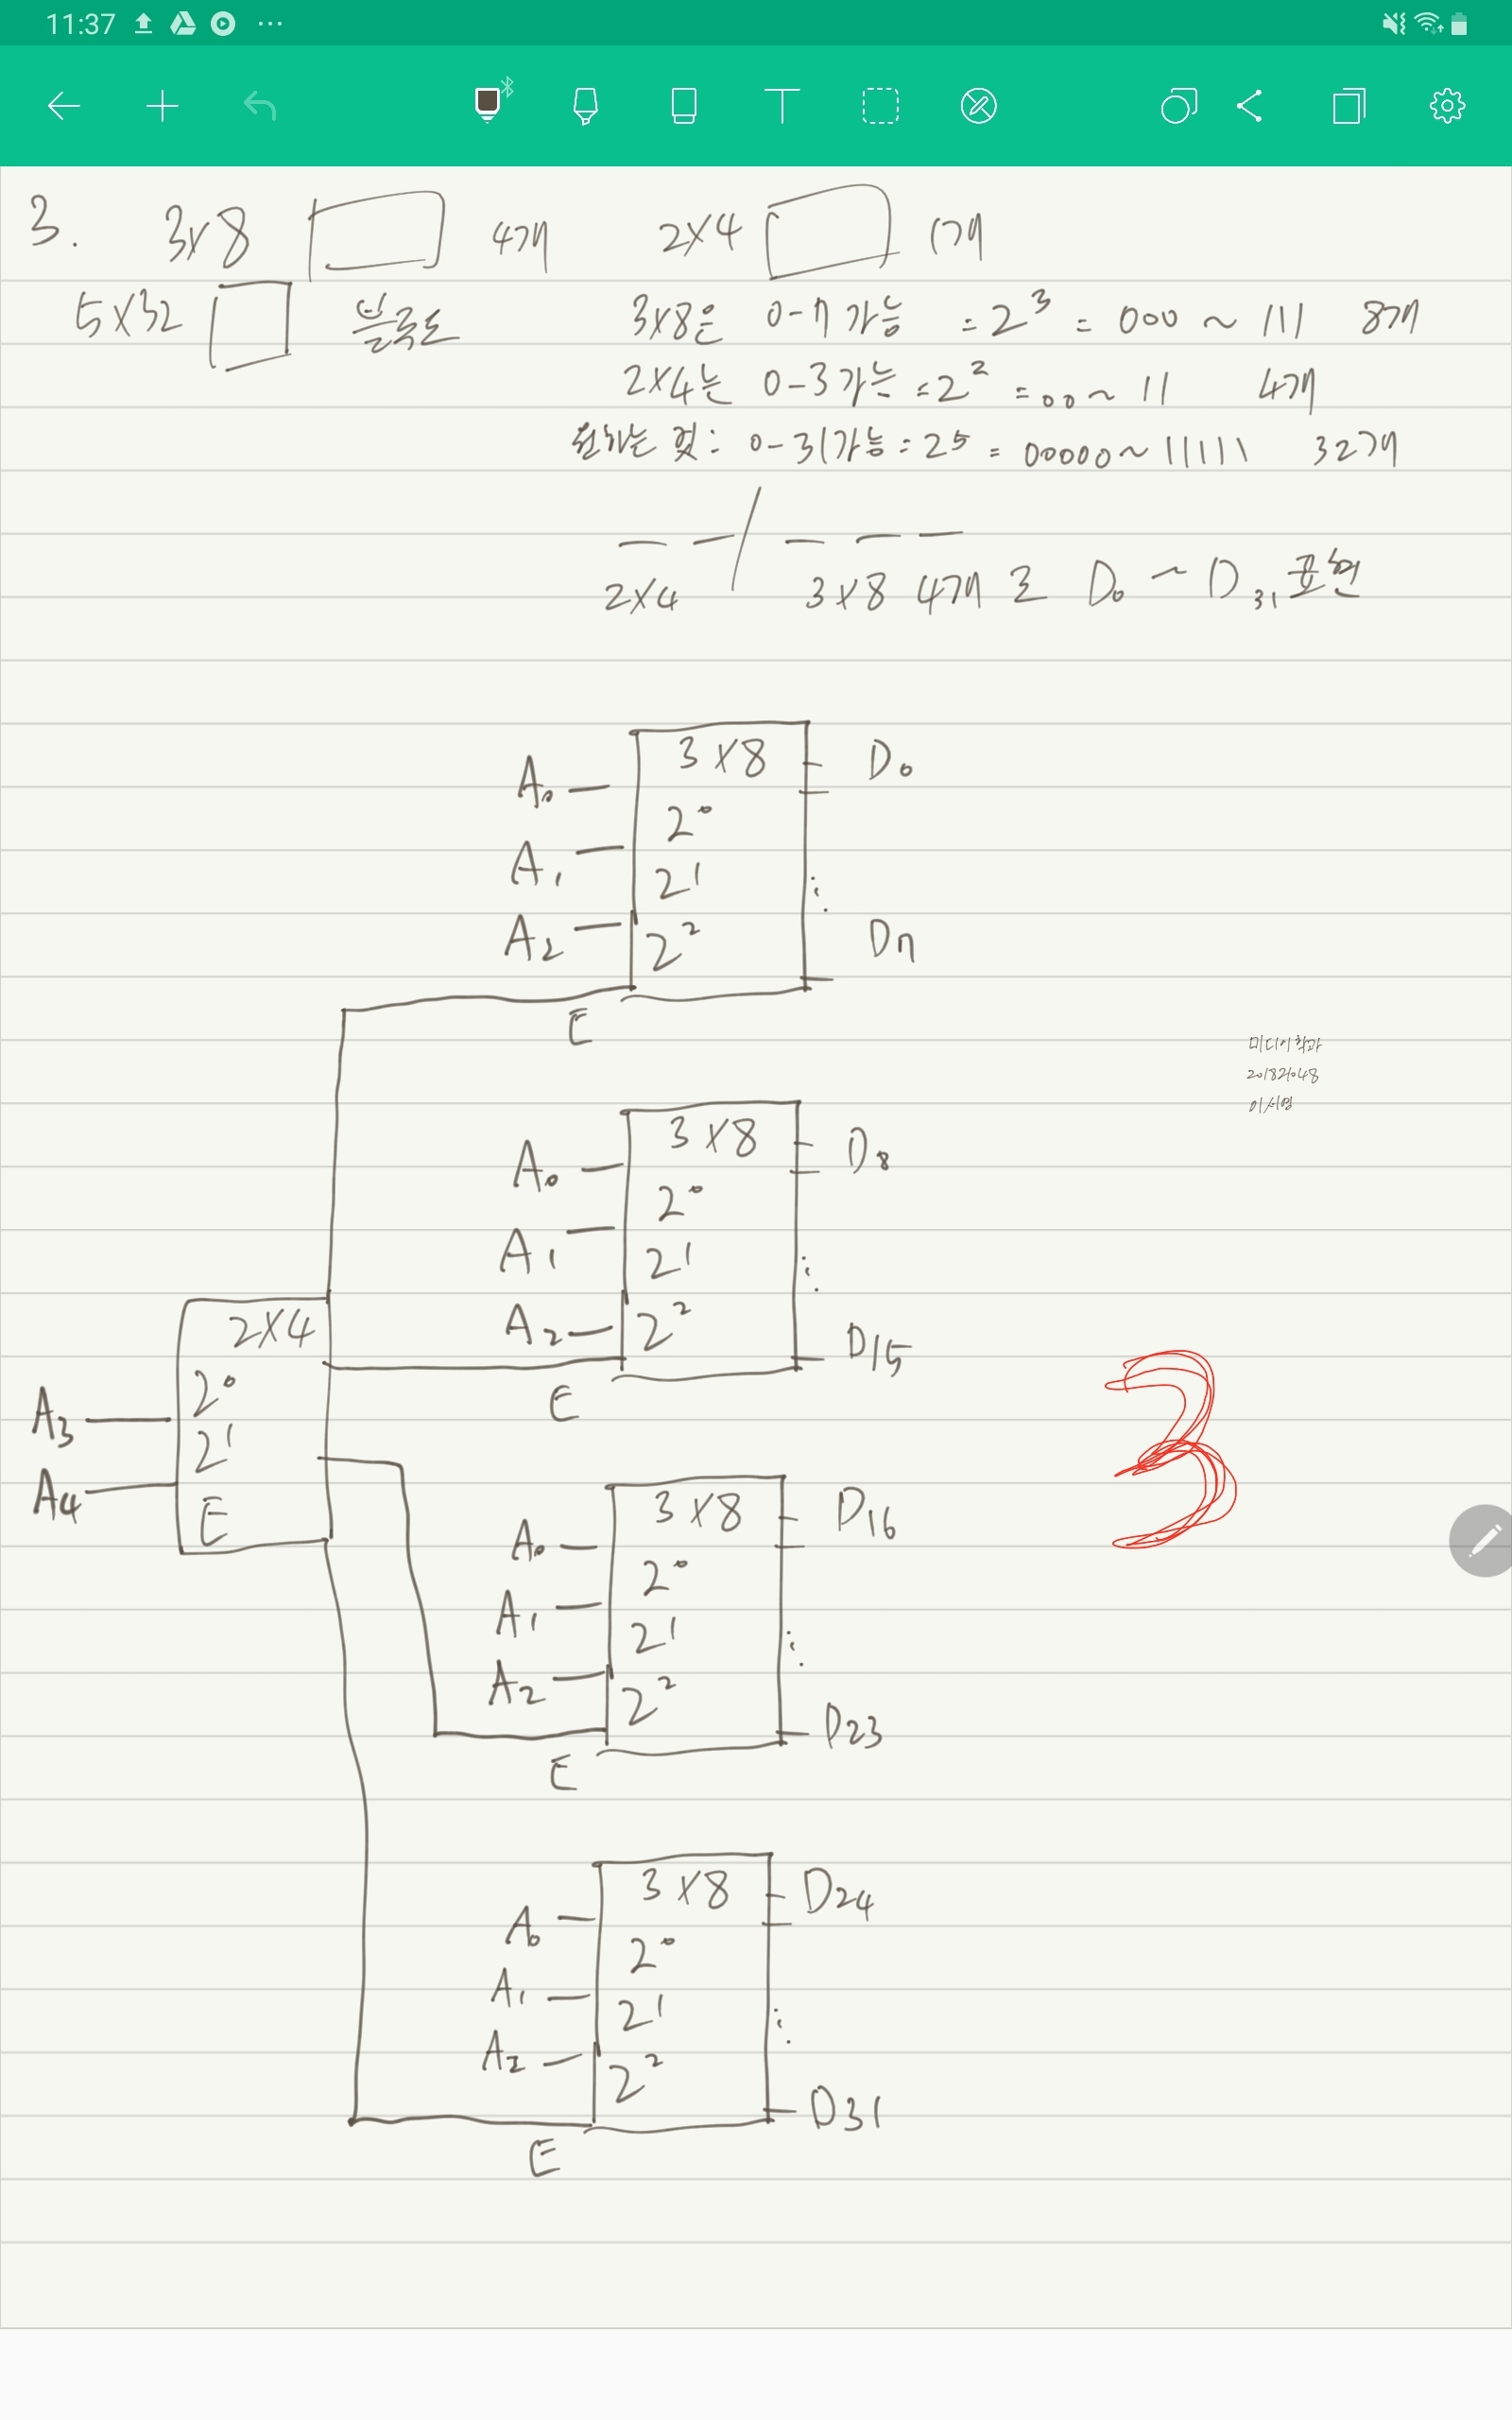 11:37
3. 3x8 4개 2x4 1개
5x32 블록도 3x8은 0-7 가능 = 2³ = 000 ~ 111 8개
2x4는 0-3 가능 = 2² = 00 ~ 11 4개
원하는 것: 0-31 가능 = 25 = 00000 ~ 11111 32개
2x4 / 3x8 4개로 D₀ ~ D₃₁ 표현
3x8
A₀ D₀
2⁰
A₁ 2¹
A₂ 2² D7
E
미디어학과
201821048
3x8
A₀ D₈
2⁰
A₁ 2¹
A₂ 2² D15
E
2x4
A₃ 2⁰
2¹
A₄ E
3
3x8
A₀ D16
2⁰
A₁ 2¹
A₂ 2² D23
E
3x8
A₀ D24
2⁰
A₁ 2¹
A₂ 2² D31
E